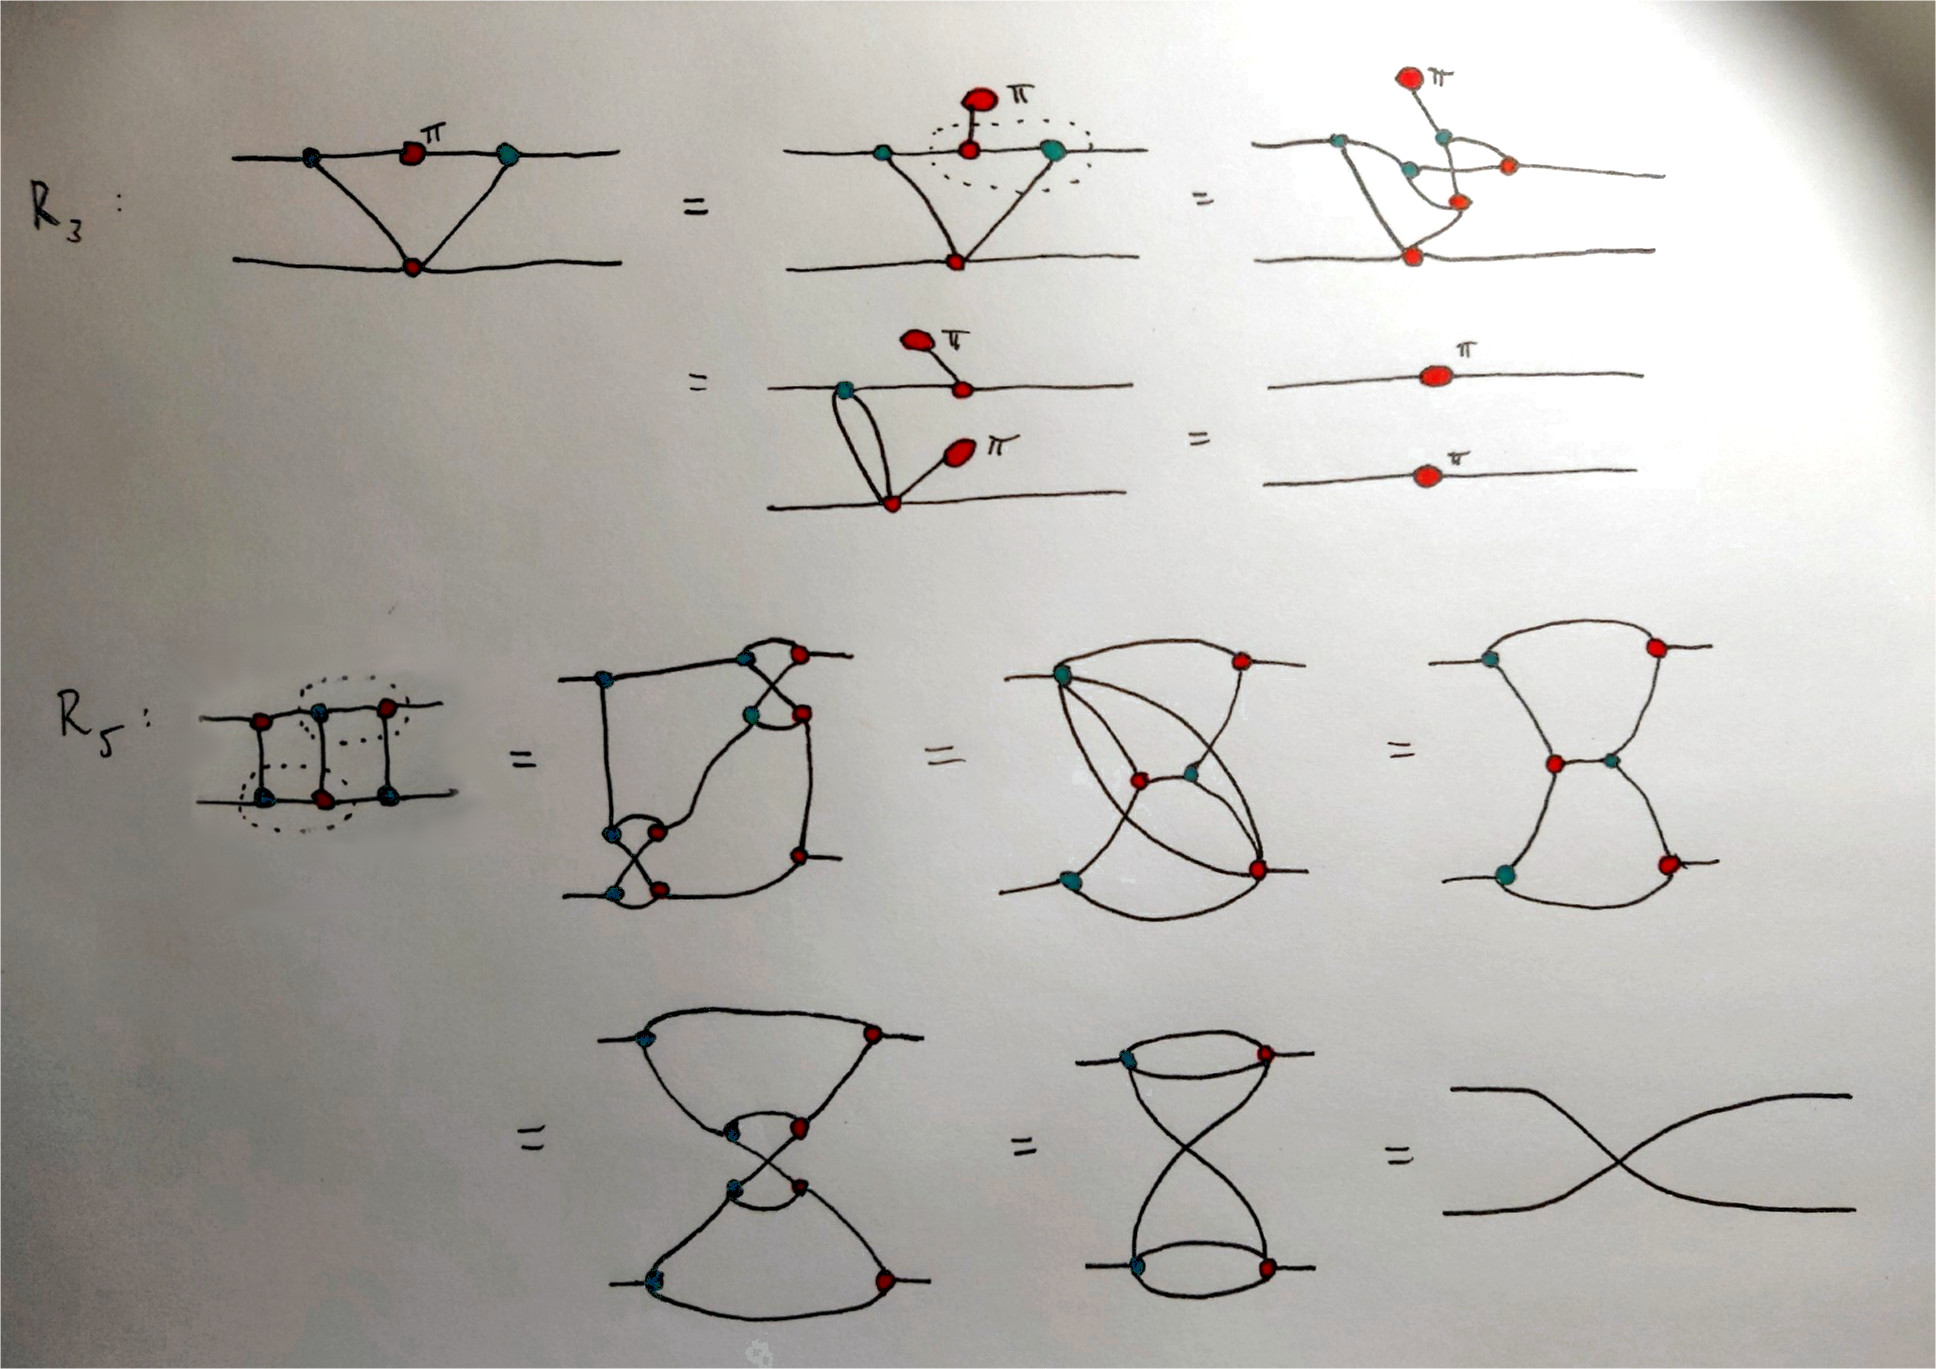 R₃ :
π
=
π
=
π
=
π
π
=
π
π
R₅ :
=
=
=
=
=
=